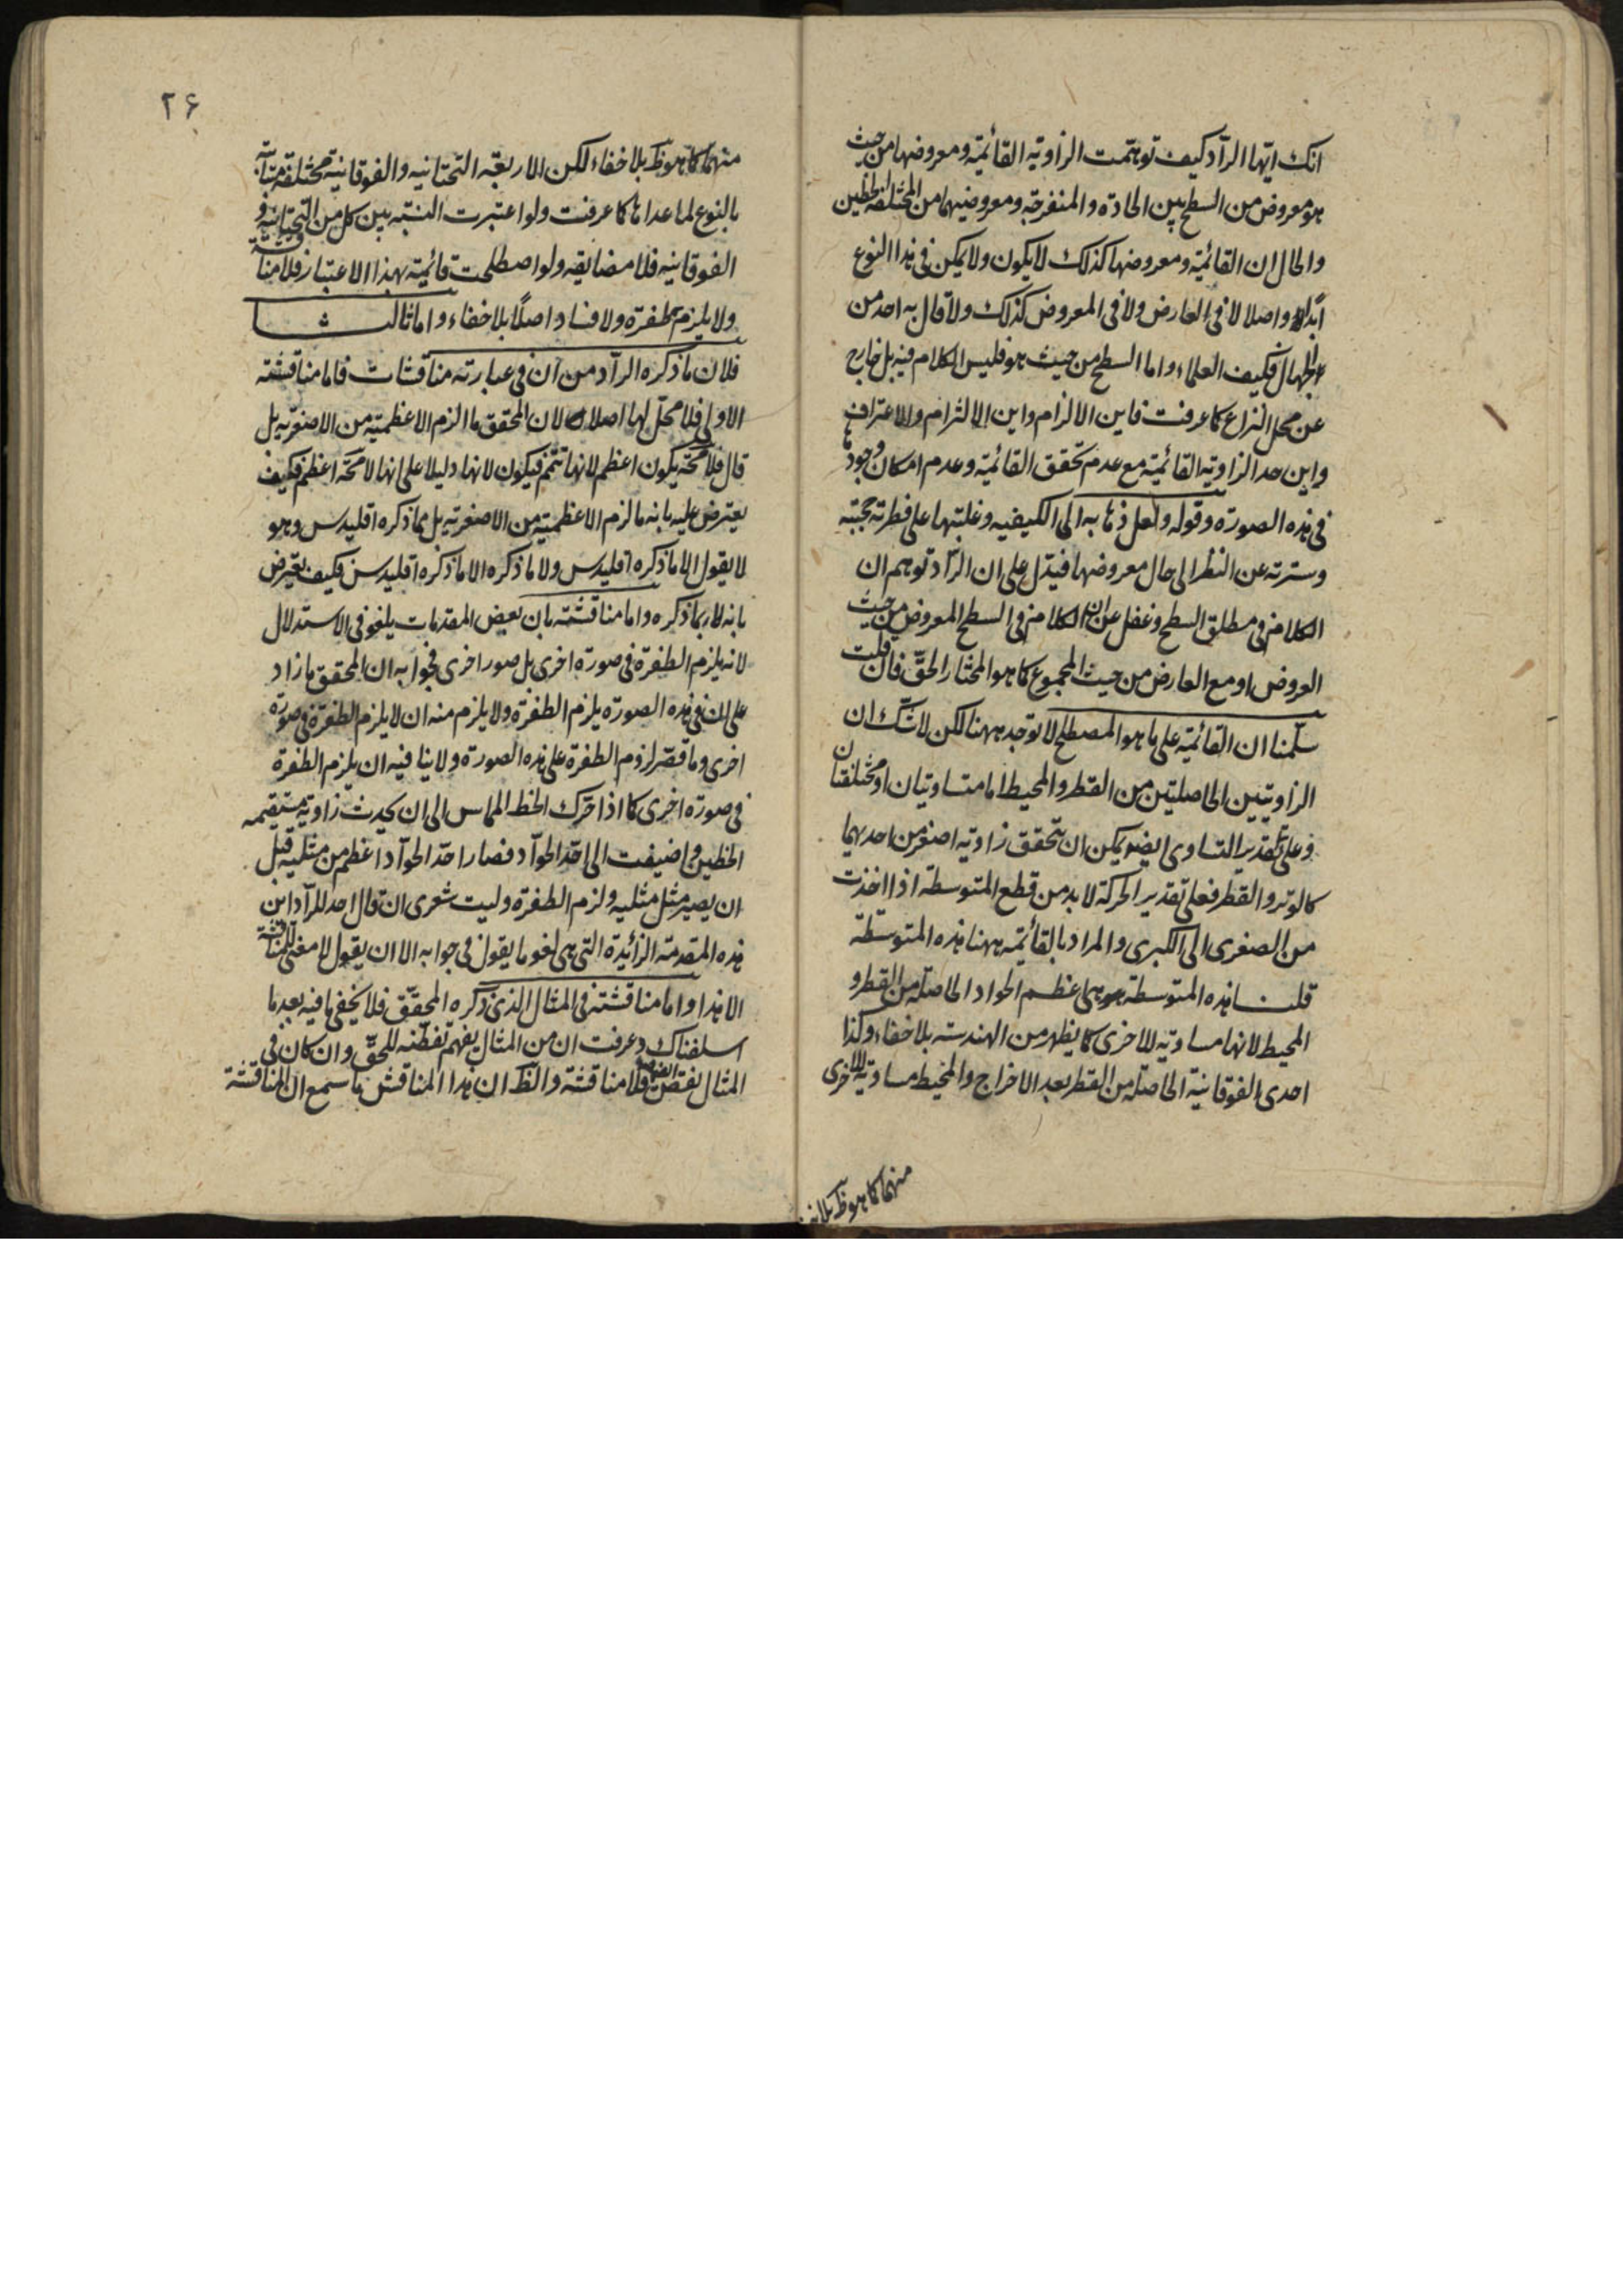 انك ايها الرآد كيف توهمت الزاوية القائمة ومعروضها من حيث
هو معروض من السطح بين الحادة والمنفرجة ومعروضيهما من المختلفة الخطين
والحال ان القائمة ومعروضها كذلك لا يكون ولا يمكن فى هذا النوع
ابدا واصلا لا فى العارض ولا فى المعروض كذلك ولا قال به احد من
الجهال فكيف العلماء واما السطح من حيث هو فليس الكلام فيه بل خارج
عن محل النزاع كما عرفت فاين الالزام واين الالتزام والاعتراف
واين حد الزاوية القائمة مع عدم تحقق القائمة وعدم امكان وجودها
فى هذه الصورة وقوله ولعل ذهابه الى الكيفيه وغلبتها على فطرته حجبته
وسترته عن النظر الى حال معروضها فيدل على ان الرآد توهم ان
الكلام فى مطلق السطح وغفل عن ان الكلام فى السطح المعروض من حيث
العروض او مع العارض من حيث المجموع كما هو المختار الحق فان قلت
سلّمنا ان القائمة على ما هو المصطلح لا توجد ههنا لكن لا شك ان
الزاويتين الحاصلتين من القطر والمحيط اما متساويتان او مختلفتان
وعلى تقدير التساوى ايضا يمكن ان يتحقق زاوية اصغر من احديهما
كالوتر والقطر فعلى تقدير الحركة لا بد من قطع المتوسطة اذا اخذت
من الصغرى الى الكبرى والمراد بالقائمة ههنا هذه المتوسطة
قلت هذه المتوسطة هى اعظم الحواد الحاصلة من القطر و
المحيط لانها مساوية للاخرى كما يظهر من الهندسة بلا خفاء وكذا
احدى الفوقانية الحاصلة من القطر بعد الاخراج والمحيط مساوية للاخرى
منهما كما هو ظ بلا
٢۶
منهما كما هو ظ بلا خفاء لكن الاربعة التحتانيه والفوقانية مختلفة
بالنوع لما عداها كما عرفت ولو اعتبرت النسبة بين كل من التحتانية و
الفوقانيه فلا مضايقه ولو اصطلحت قائمية بهذا الاعتبار فلا مناقشة
ولا يلزم طفرة ولا فساد اصلًا بلا خفاء واما ثالثا
فلان ما ذكره الرآد من ان فى عبارته مناقشات فاما مناقشته
الاولى فلا محل لها اصلا لان المحقق ما الزم الاعظمية من الاصغرية بل
قال فلا محة يكون اعظم لانها تتمم فيكون لانها دليلا على انها لا محة اعظم فكيف
يعترض عليه بانه ما لزم الاعظمية من الاصغرية بل مما ذكره اقليدس وهو
لا يقول الا ما ذكره اقليدس ولا ما ذكره الا ما ذكره اقليدس فكيف يعترض
بانه بما ذكره واما مناقشته بان بعض المقدمات يلغو فى الاستدلال
لانه يلزم الطفرة فى صورة اخرى بل صور اخرى فجوابه ان المحقق ما زاد
على ان فى هذه الصورة يلزم الطفرة ولا يلزم منه ان لا يلزم الطفرة فى صورة
اخرى وما قصر لزوم الطفرة على هذه الصورة ولا ينافيه ان يلزم الطفرة
فى صورة اخرى كما اذا تحرك الخط المماس الى ان يحدث زاوية مستقيمه
الخطين واضيفت الى احد الحوآد فصار احد الحوآد اعظم من مثليه قبل
ان يصير مثل مثليه ولزم الطفرة وليت شعرى ان قال احد للرآد اين
هذه المقدمة الزائدة التى هى لغو ما يقول فى جوابه الا ان يقول لا معنى للمناقشة
الا هذا واما مناقشته فى المثال الذى ذكره المحقق فلا يخفى ما فيه بعد ما
اسلفناك وعرفت ان من المثال يفهم تفطنه للحق وان كان فى
المثال بعض فلا مناقشة والظ ان هذا المناقش ما سمع ان المناقشة